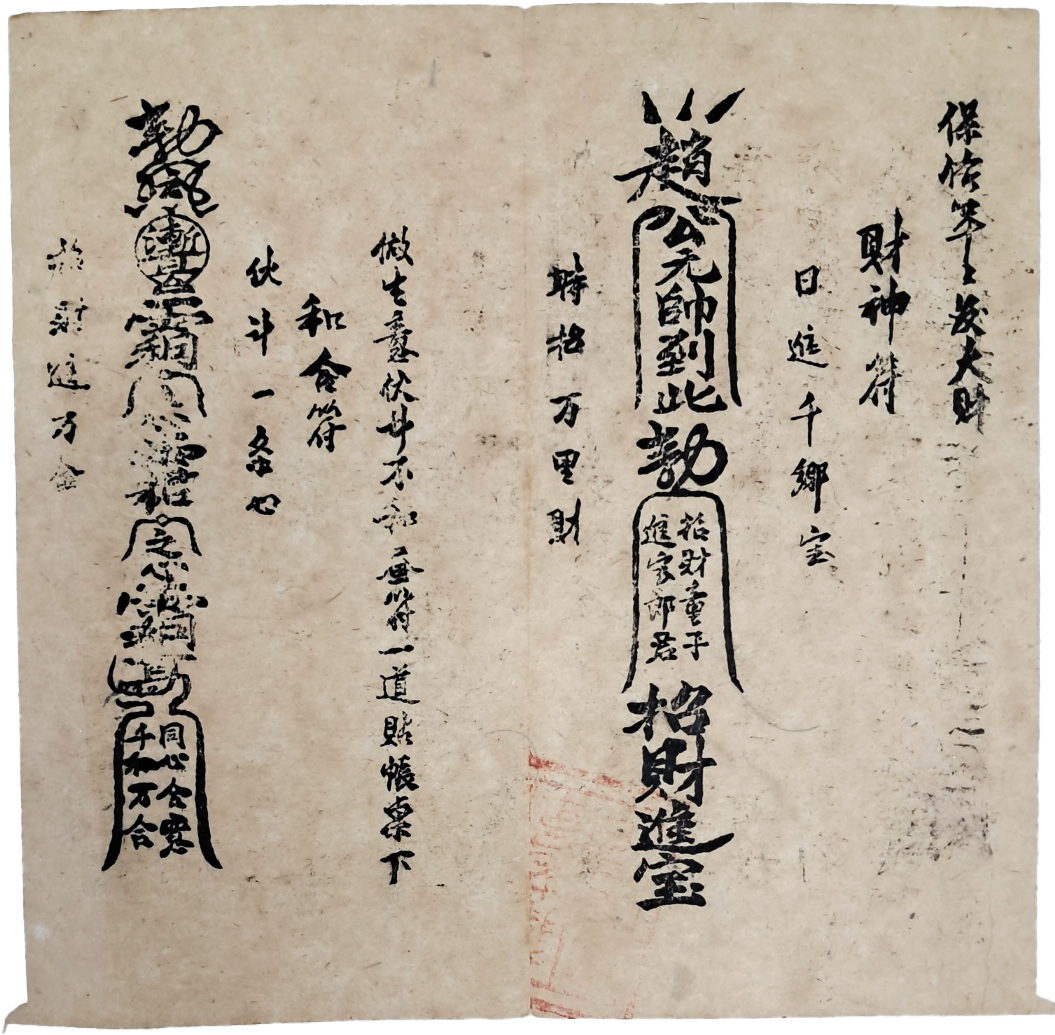 保你年年發大財
財神符
日進千鄉宝
趙公元帥到此勅招財童子進家郎君招財進宝
時招万里財
做生意伙計不和 符一道貼帳桌下
和合符
伙计一条心
勅 同心合 千和万合
招財進万金